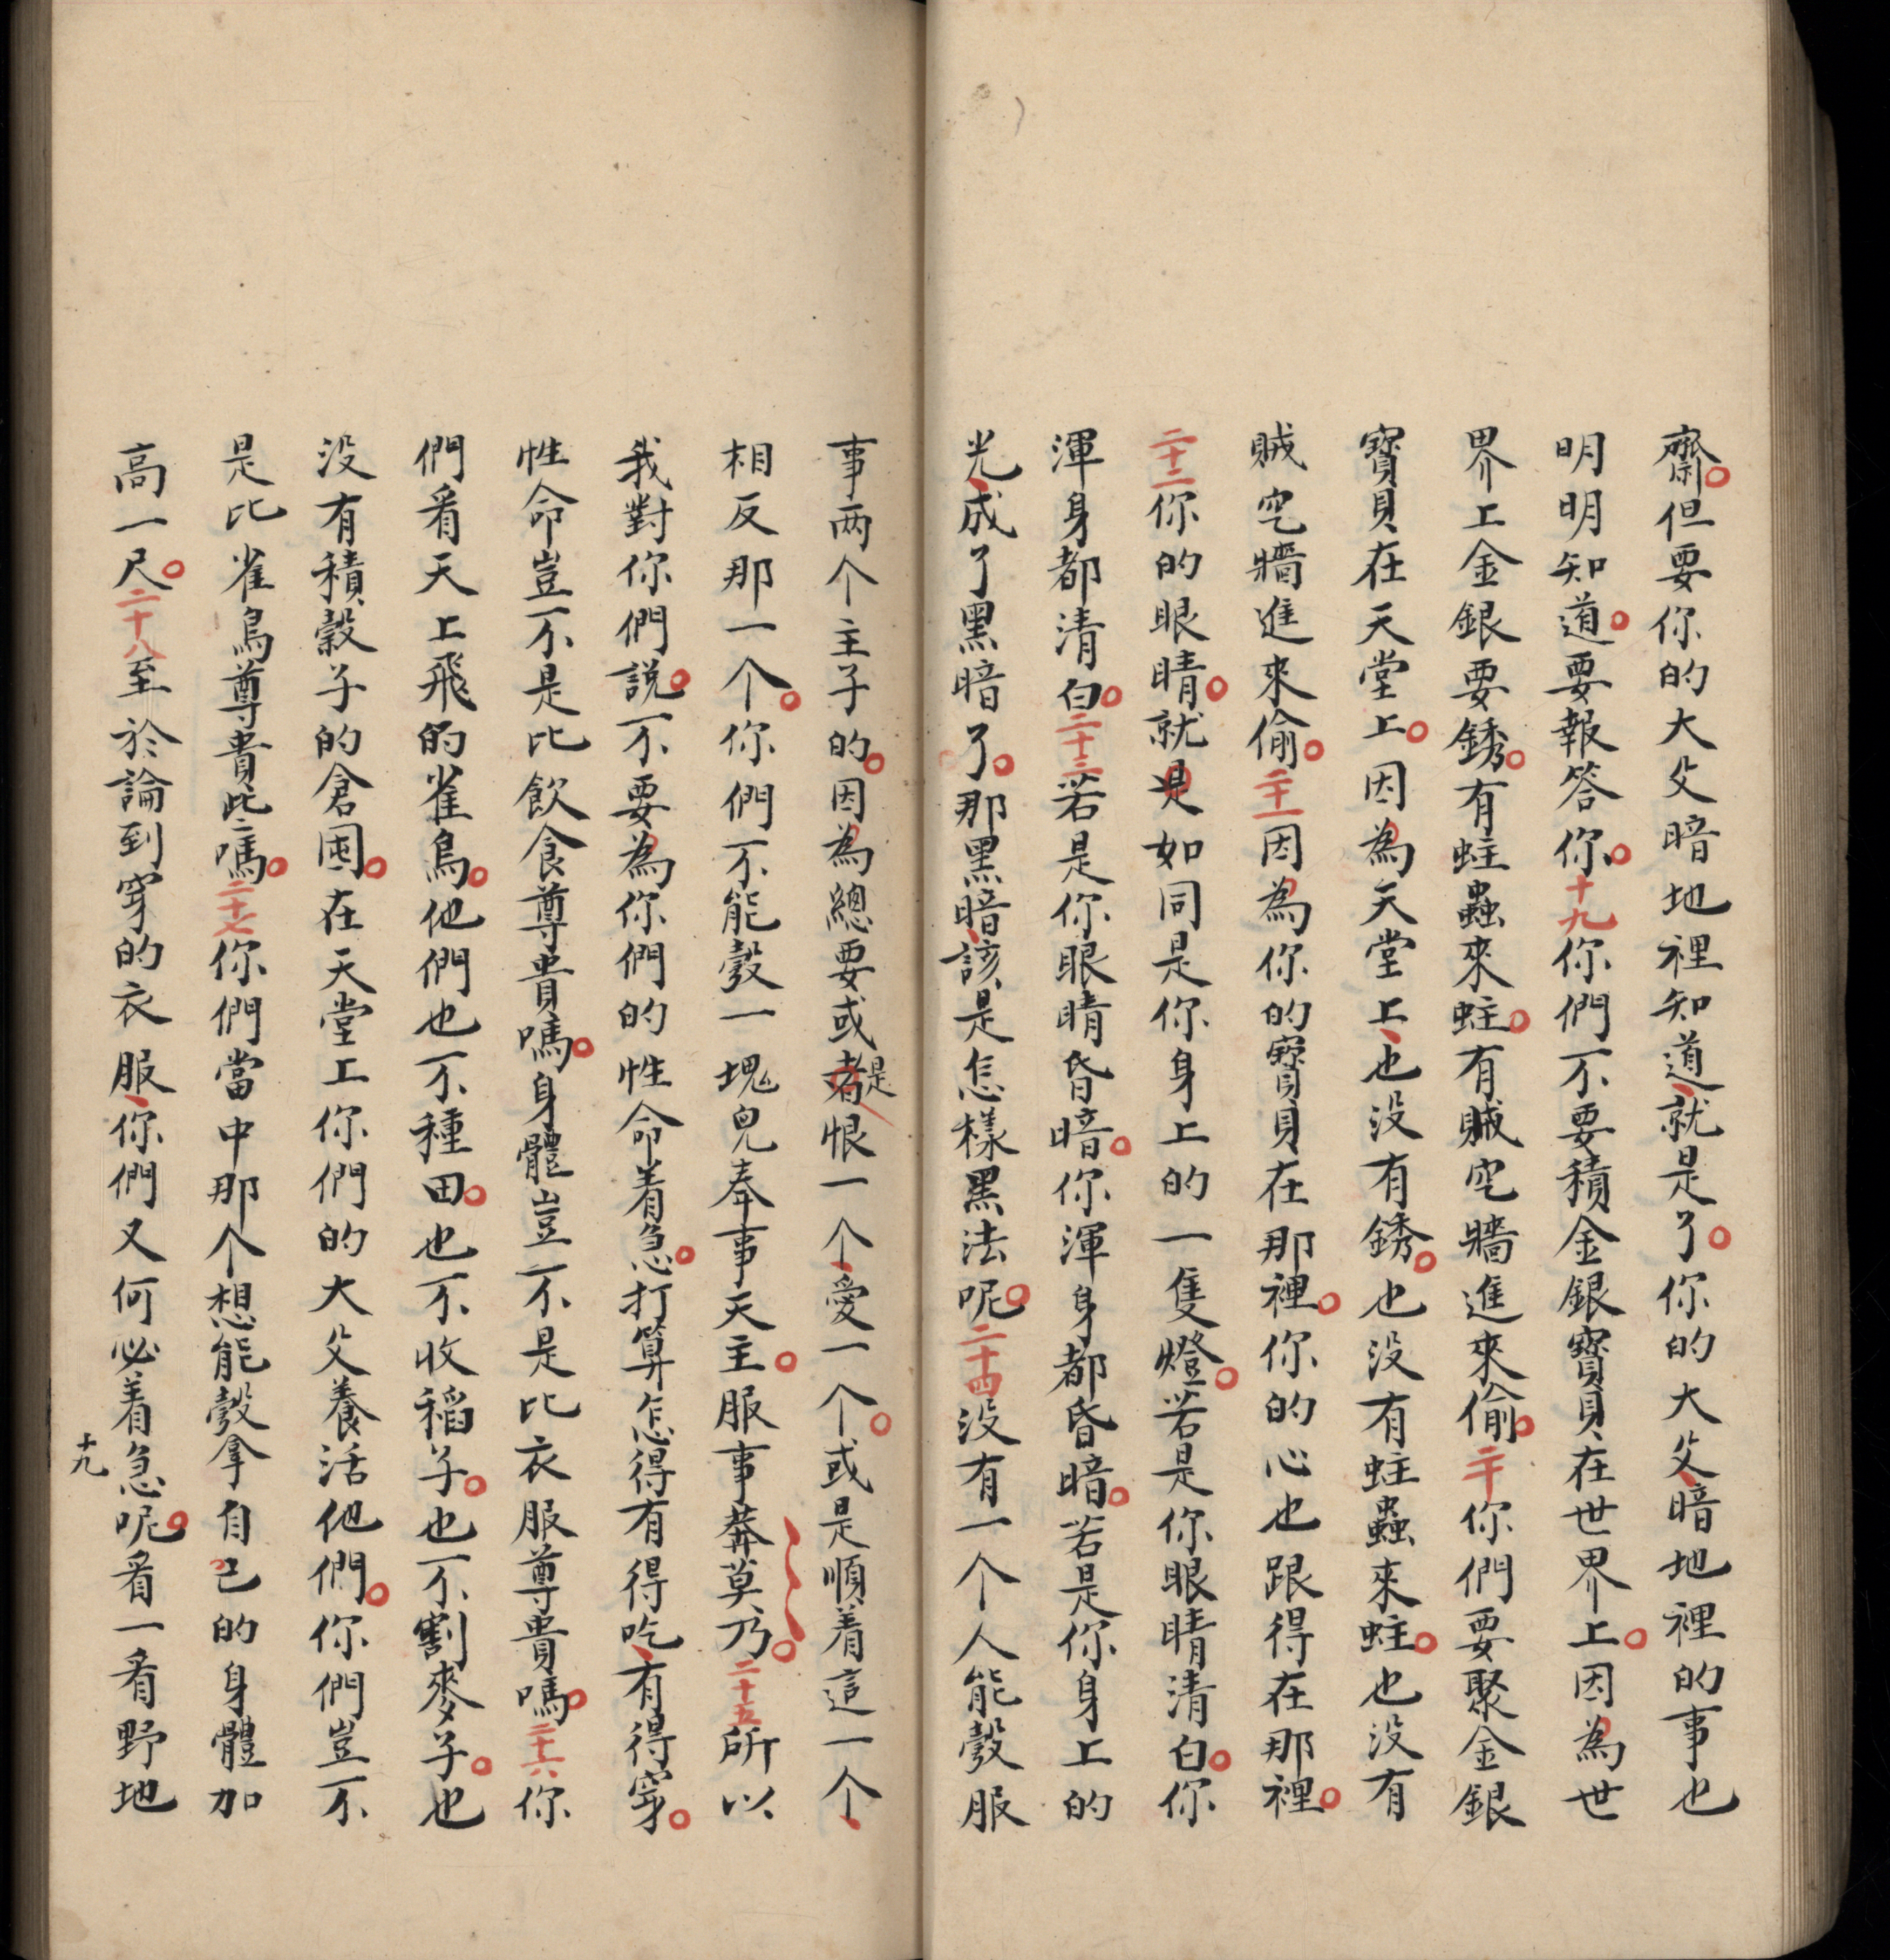 齋。但要你的大父暗地裡知道、就是了。你的大父、暗地裡的事也
明明知道。要報答你。十九你們不要積金銀寶貝在世界上。因為世
界上金銀要銹。有蛀蟲來蛀。有賊穵墻進來偷。二十你們要聚金銀
寶貝在天堂上。因為天堂上、也没有銹。也没有蛀蟲來蛀。也没有
賊穵墻進來偷。二十一因為你的寶貝在那裡。你的心也跟得在那裡。
二十二你的眼睛。就是如同是你身上的一隻燈。若是你眼睛清白。你
渾身都清白。二十三若是你眼睛昏暗。你渾身都昏暗。若是你身上的
光、成了黑暗了。那黑暗、該是怎樣黑法呢。二十四没有一个人能彀服
事两个主子的。因為總要或者是恨一个、愛一个。或是順着這一个、
相反那一个。你們不能彀一塊兒奉事天主。服事莽莫乃。二十五所以
我對你們説。不要為你們的性命着急。打算怎得有得吃、有得穿。
性命豈不是比飲食尊貴嗎。身體豈不是比衣服尊貴嗎。二十六你
們看天上飛的雀鳥。他們也不種田。也不收稻子。也不割麥子。也
没有積穀子的倉囷。在天堂上你們的大父養活他們。你們豈不
是比雀鳥尊貴些嗎。二十七你們當中那个想能彀拿自己的身體加
高一尺。二十八至於論到穿的衣服、你們又何必着急呢。看一看野地
十九